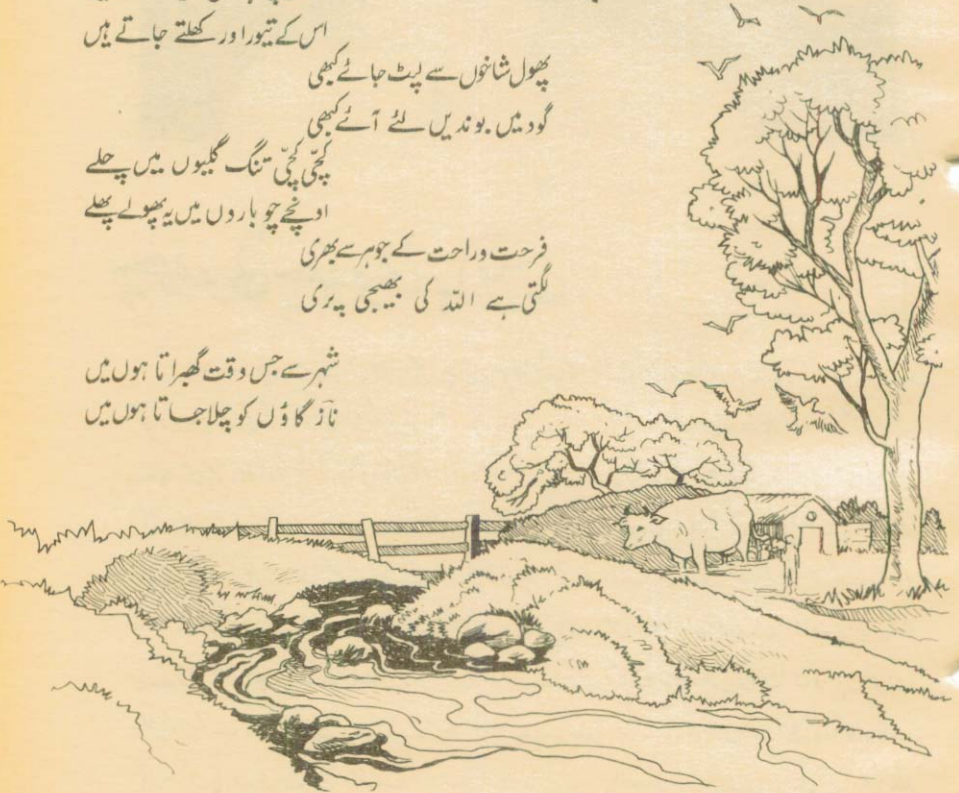 اس کے تیور اور کھلتے جاتے ہیں
پھول شاخوں سے لپٹ جائے کبھی
گود میں بوندیں لئے آئے کبھی
کچّی کچّی تنگ گلیوں میں چلے
اونچے چوباروں میں یہ پھولے پھلے
فرحت و راحت کے جوہر سے بھری
لگتی ہے اللہ کی بھیجی پری
شہر سے جس وقت گھبراتا ہوں میں
نازؔ گاؤں کو چلا جاتا ہوں میں